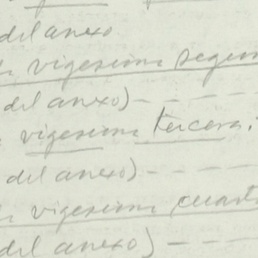 del anexo
vigesima segun
del anexo) - - - -
vigesima tercera:
del anexo) - - -
vigesima cuarta
del anexo) - - -